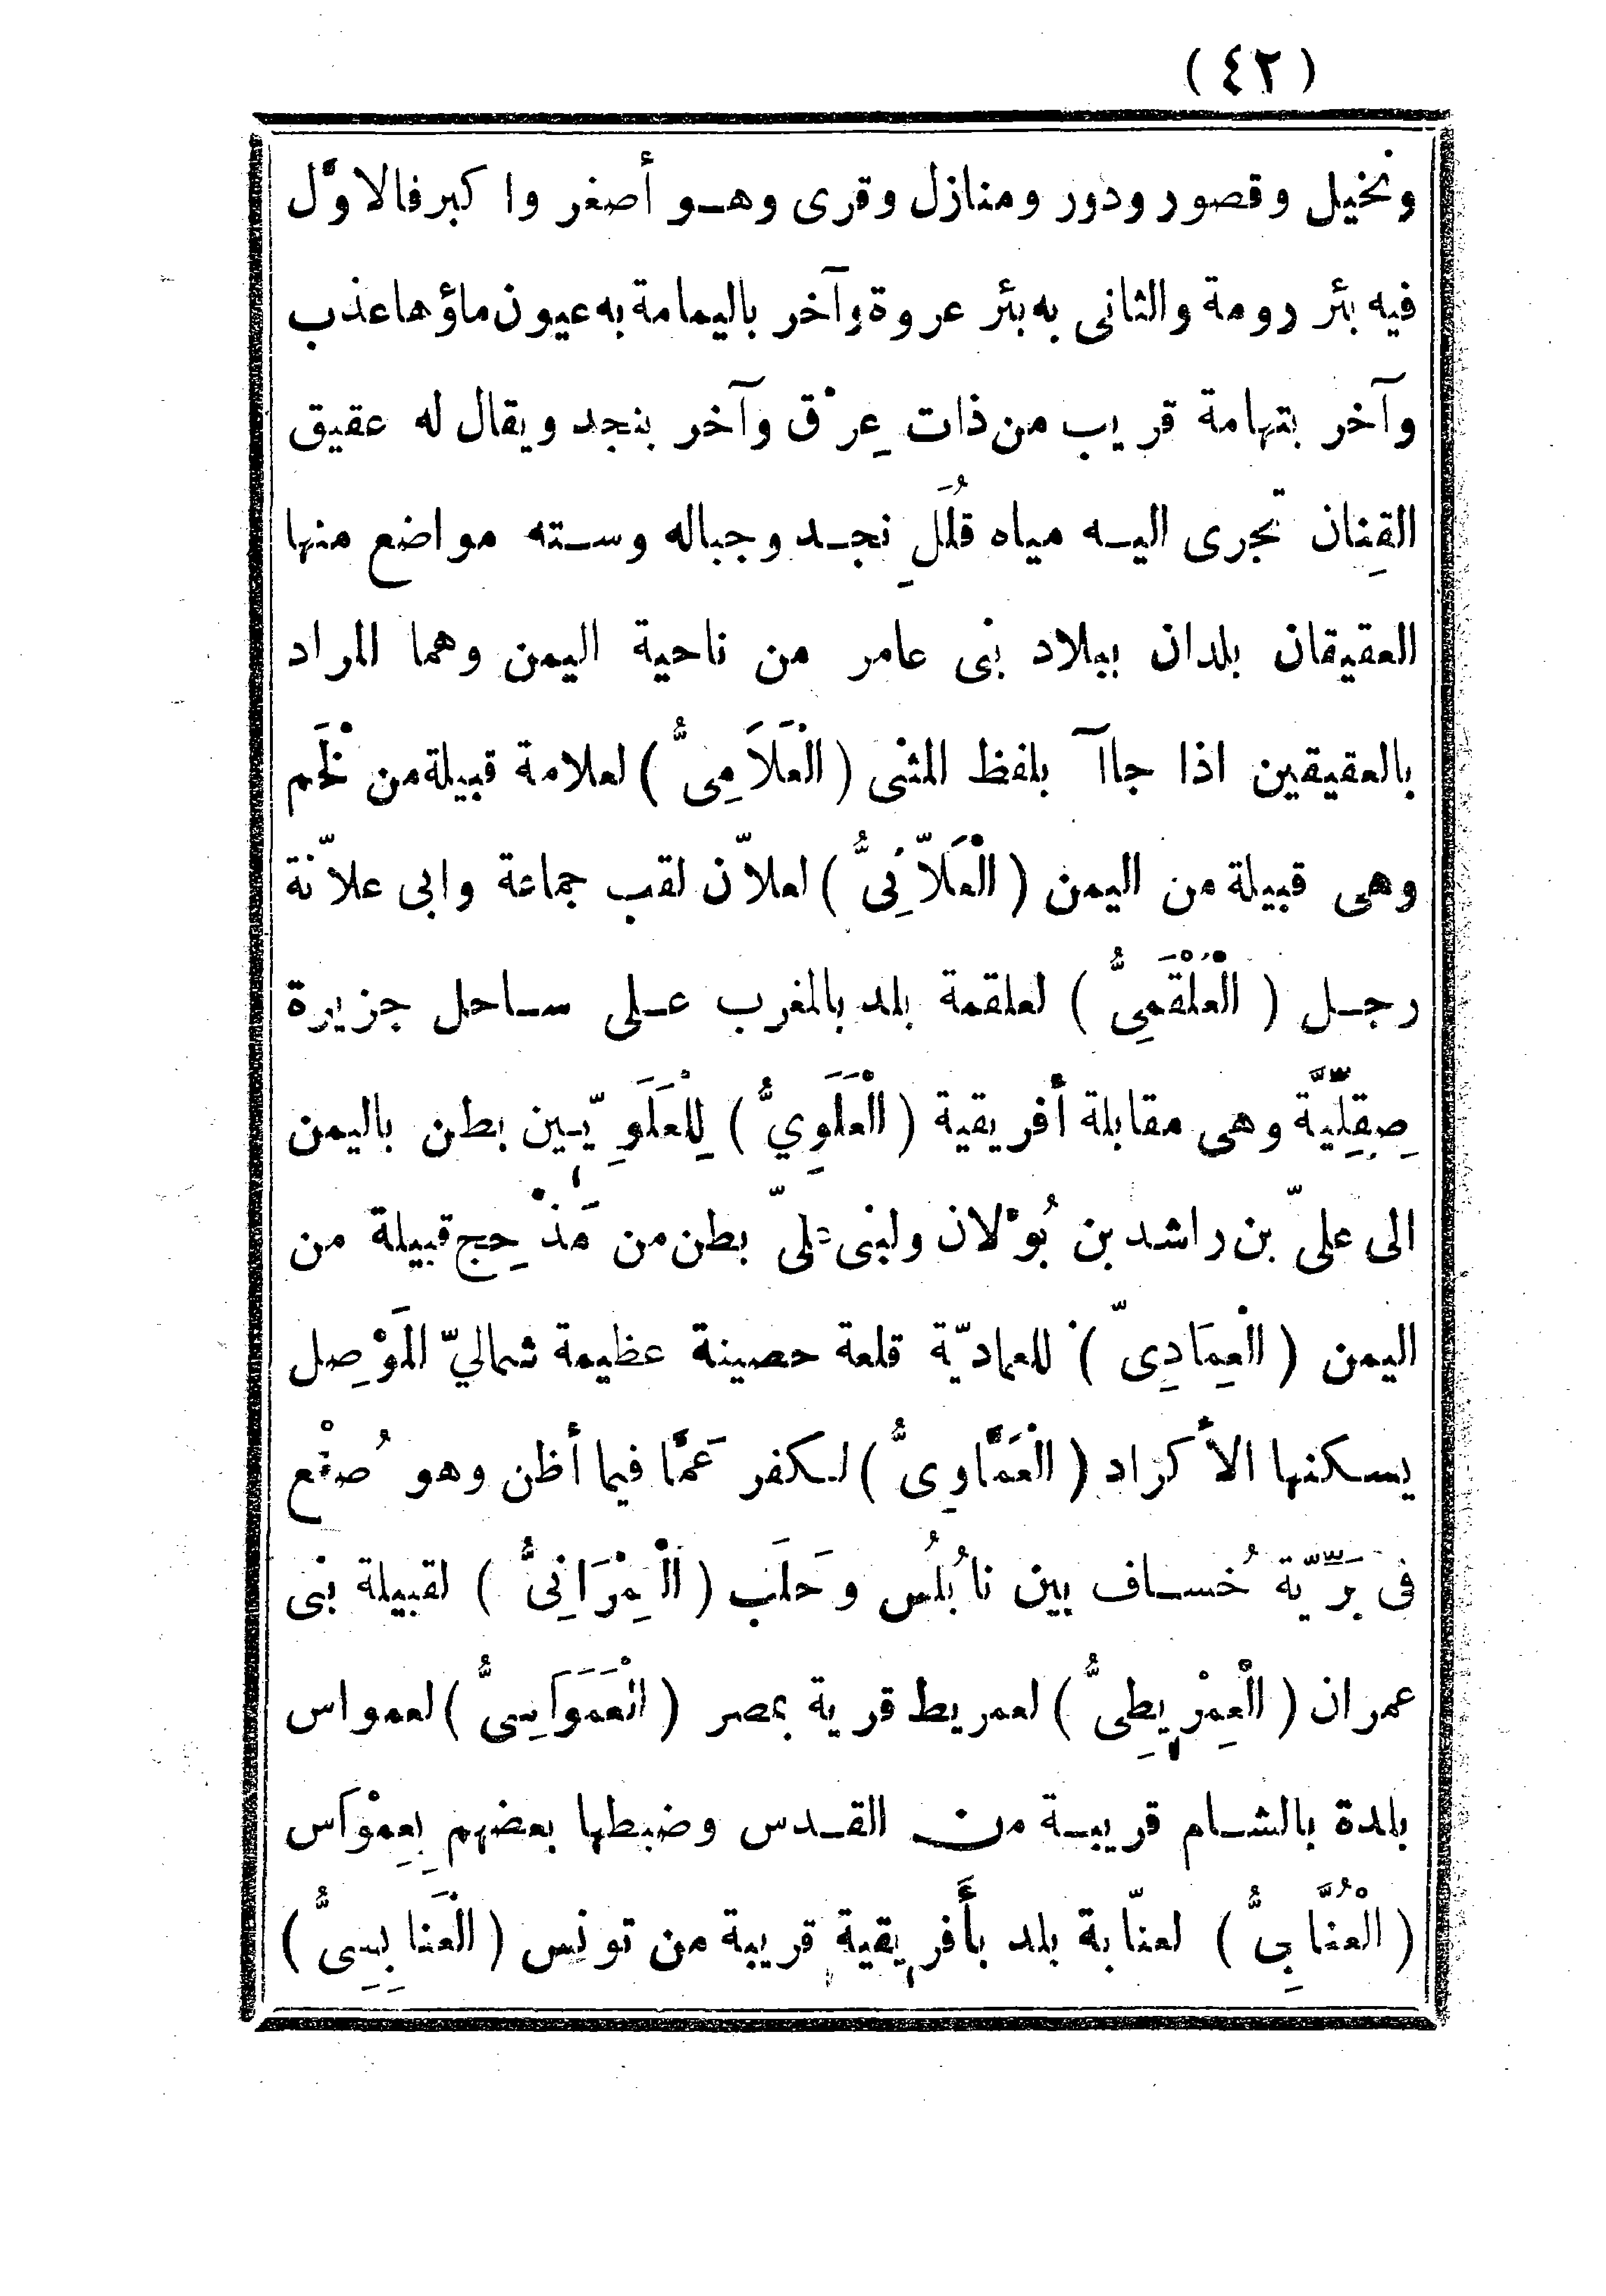 (٤٢)
ونخيل وقصور ودور ومنازل وقرى وهو أصغر واكبر فالاوّل
فيه بئر رومة والثانى به بئر عروة وآخر باليمامة به عيون ماؤها عذب
وآخر بتهامة قريب من ذات عِرْق وآخر بنجد ويقال له عقيق
القِنان تجرى اليه مياه قُلَلِ نجد وجباله وستة مواضع منها
العقيقان بلدان ببلاد بنى عامر من ناحية اليمن وهما المراد
بالعقيقين اذا جاآ بلفظ المثنى (الْعَلَامِىُّ) لعلامة قبيلة من لَخْم
وهى قبيلة من اليمن (الْعَلَّانِىُّ) لعلّان لقب جماعة وابى علّانة
رجل (الْعُلْقَمِىُّ) لعلقمة بلد بالمغرب على ساحل جزيرة
صِقِلِّيَّة وهى مقابلة أفريقية (الْعَلَوِيُّ) لِلْعَلَوِيّين بطن باليمن
الى علىّ بن راشد بن بُوْلان ولبنى علىّ بطن من مَذْحِج قبيلة من
اليمن (الْعِمَادِىّ) للعماديّة قلعة حصينة عظيمة شماليّ المَوْصِل
يسكنها الأكراد (الْعَمَّاوِىُّ) لكفر عَمَّا فيما أظن وهو صُقْع
فى بَرِّيّة خُساف بين نابُلُس وحَلَب (الْعِمْرَانِىُّ) لقبيلة بنى
عمران (الْعِمْرِيطِىُّ) لعمريط قرية بمصر (الْعَمَوَاسِىُّ) لعمواس
بلدة بالشام قريبة من القدس وضبطها بعضهم بِعِمْوَاس
(الْعُنَّابِىُّ) لعنّابة بلد بأَفريقية قريبة من تونس (الْعَنابِسِىُّ)